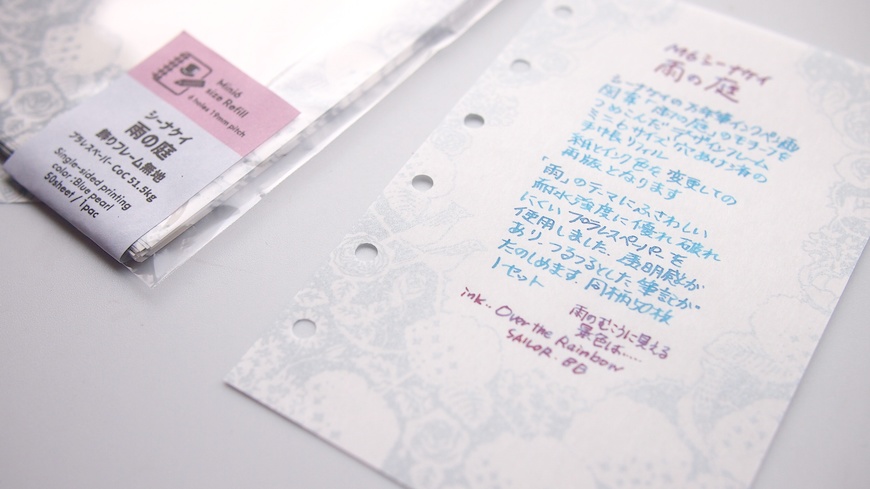 Mini6
size Refill
6 holes 19mm pitch
シーナケイ
雨の庭
飾りフレーム無地
プラレスペーパー CoC 51.5kg
Single-sided printing
color:Blue pearl
50sheet / 1pac
M6 シーナケイ
雨の庭
シーナケイの万年筆インクペン画
図案「雨の庭」のモチーフを
つめこんだデザインフレーム
ミニ6サイズ穴あけ済の
リフィル
紙とインク色を変更しての
再販となります
「雨」のテーマにふさわしい
耐水強度に優れ破れ
にくいプラレスペーパーを
使用しました。透明感が
あり、つるつるとした筆記が
たのしめます。同柄50枚
1セット
雨のむこうに見える
景色は……
ink.. Over the Rainbow
SAILOR. BB